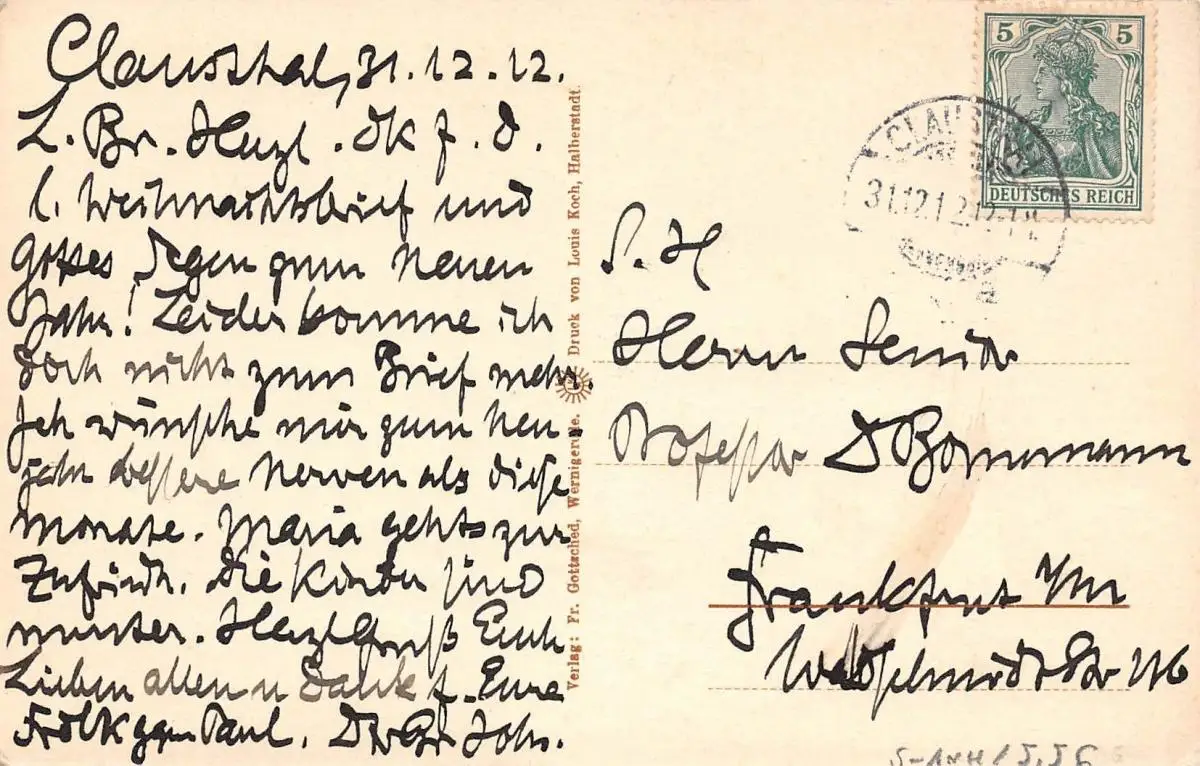 Clausthal, 31.12.12.
L. Br. Herzl. Dk f. d.
l. Weihnachtsbrief und
Gottes Segen zum Neuen
Jahr! Leider komme ich
doch nicht zum Brief mehr.
Ich wünsche mir zum Neu-
jahr bessere Nerven als diese
Monate. Maria gehts zur
Zufriedh. Die Kinder sind
munter. Herzl Gruß Euch
Lieben allen u Dank f. Eure
Paul. Joh.
Verlag: Fr. Gottsched, Wernigerode. Druck von Louis Koch, Halberstadt.
5 5
DEUTSCHES REICH
CLAUSTHAL
31.12.12
S. H
Herrn Senior
Professor D Bornemann
Frankfurt
Waldschmidtstr 116